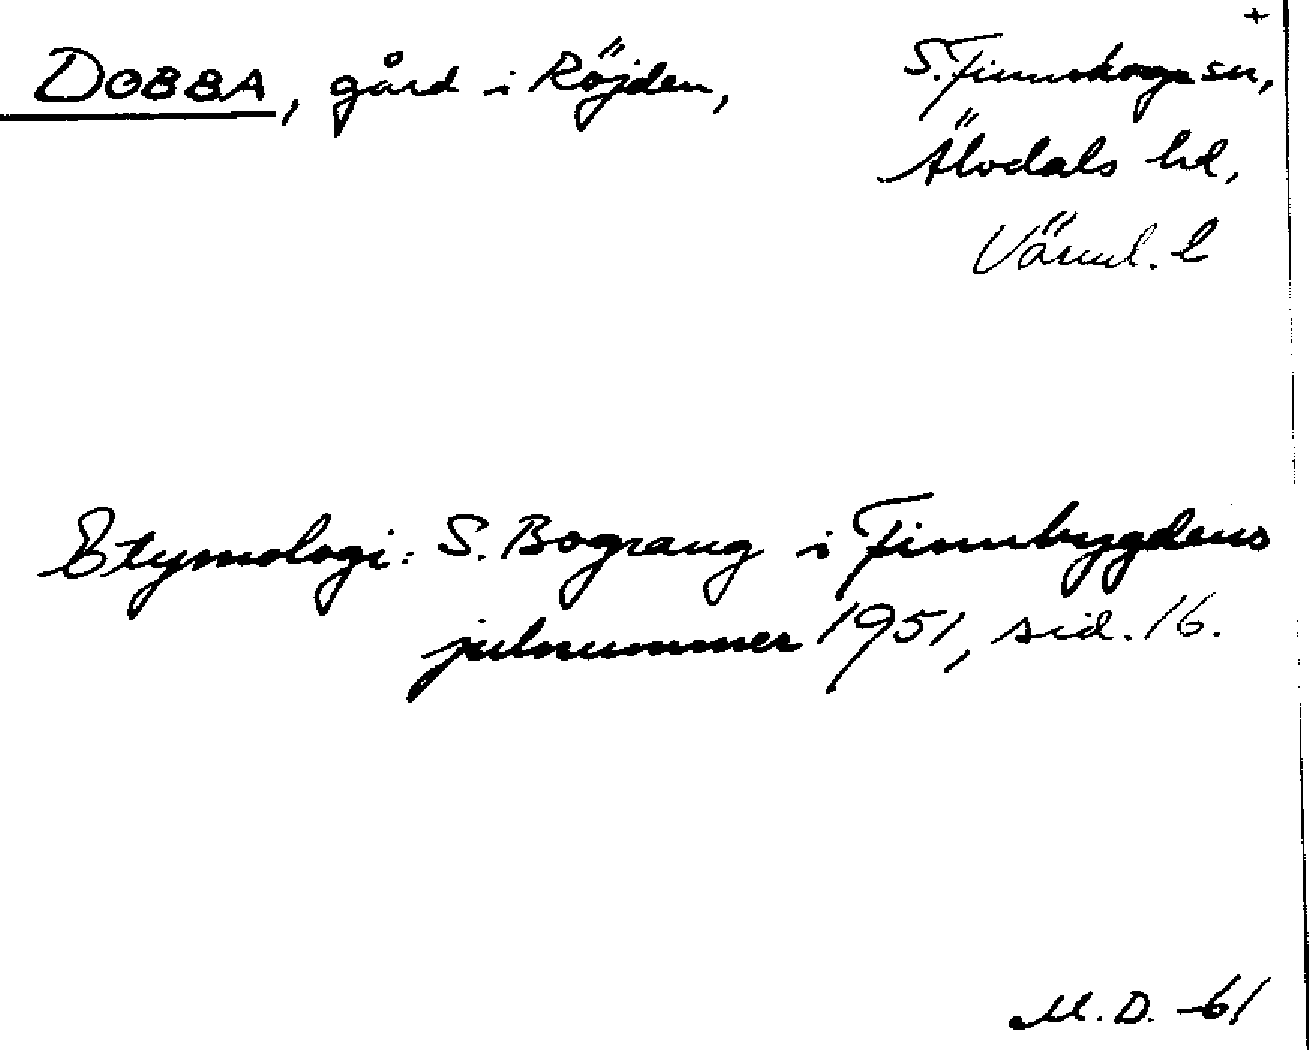 +
DOBBA, gård i Röjden,
S. Finnskoga sn,
Älvdals hd,
Värml. l
Etymologi: S. Bograng i Finnbygdens
julnummer 1951, sid. 16.
M. D. -61